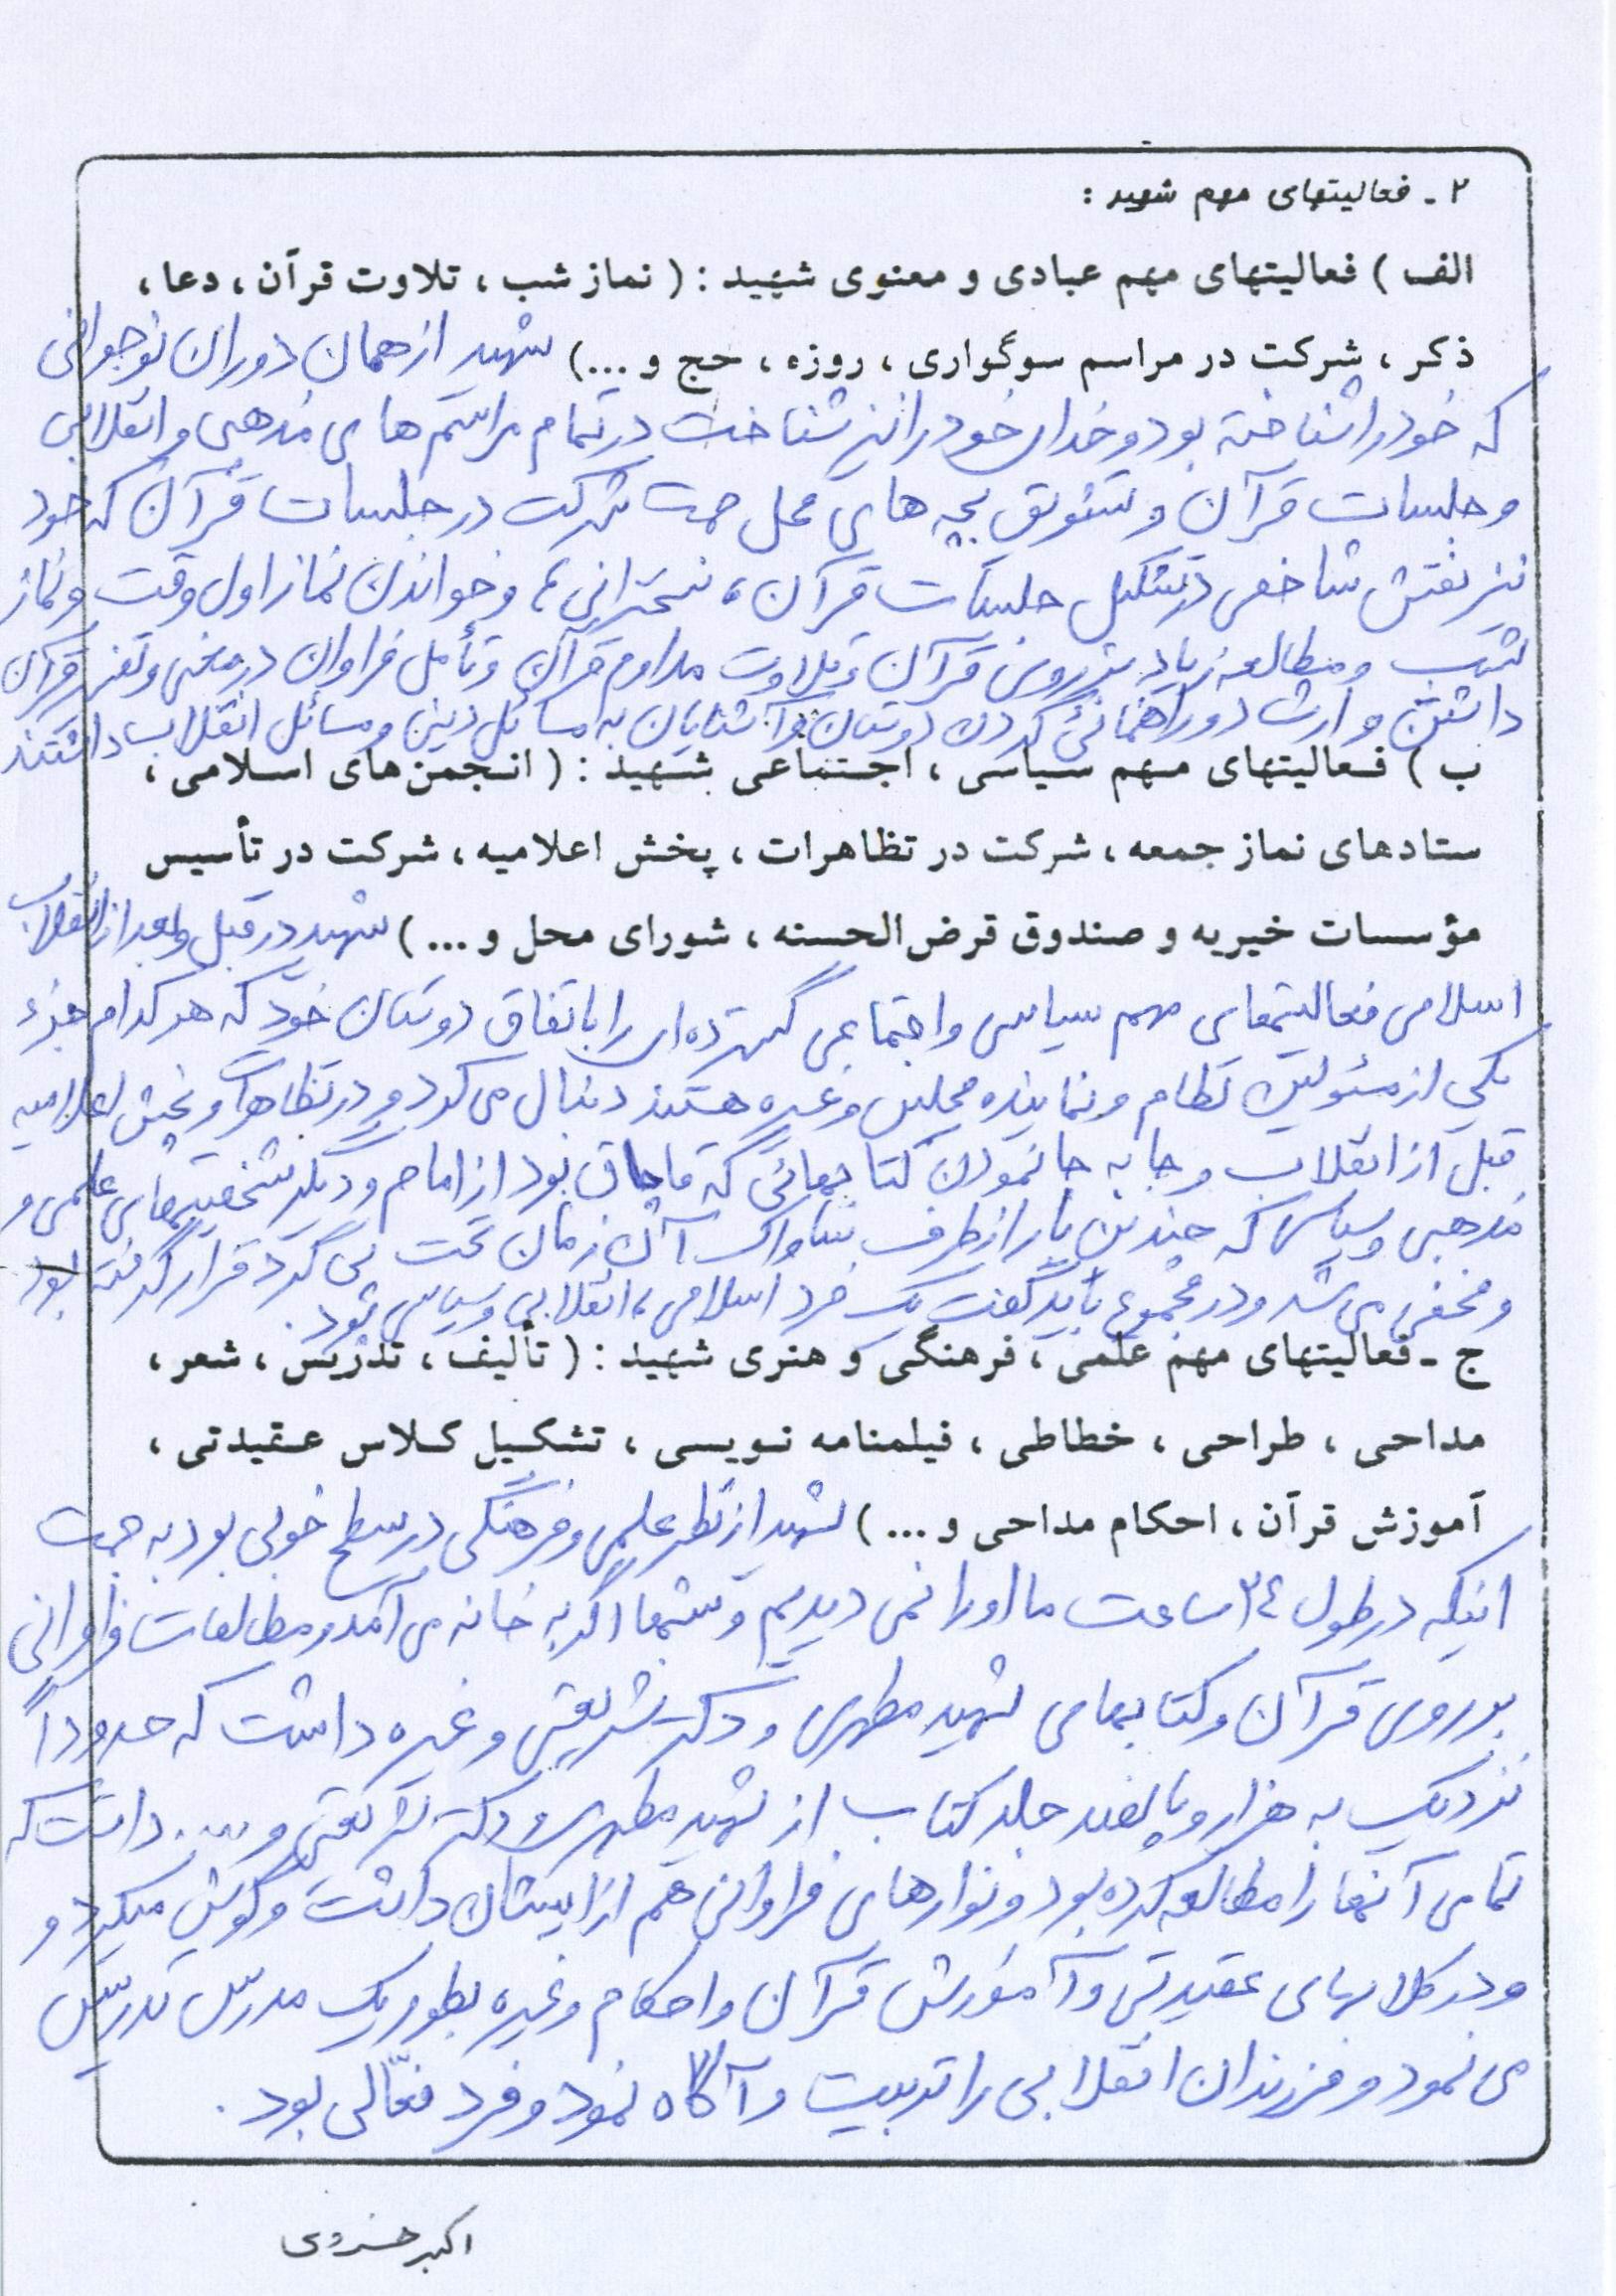 ۲ - فعالیتهای مهم شهید :
الف ) فعالیتهای مهم عبادی و معنوی شهید : ( نماز شب ، تلاوت قرآن ، دعا ،
ذکر ، شرکت در مراسم سوگواری ، روزه ، حج و ...) شهید از همان دوران نوجوانی
که خود را شناخته بود و خدای خود را نیز شناخت در تمام مراسم های مذهبی و انقلابی
و جلسات قرآن و تشویق بچه های محل جهت شرکت در جلسات قرآن که خود
نیز نقش شاخصی در تشکیل جلسات قرآن ، سخنرانی ، و خواندن نماز اول وقت و نماز
شب و مطالعه زیاد بر روی قرآن و تلاوت مداوم قرآن و تأمل فراوان در معنی و تفسیر قرآن
داشتن و ارشاد و راهنمائی کردن دوستان و آشنایان به مسائل دینی و مسائل انقلاب داشتند
ب ) فعالیتهای مهم سیاسی ، اجتماعی شهید : ( انجمن‌های اسلامی ،
ستادهای نماز جمعه ، شرکت در تظاهرات ، پخش اعلامیه ، شرکت در تأسیس
مؤسسات خیریه و صندوق قرض‌الحسنه ، شورای محل و ... ) شهید در قبل و بعد از انقلاب
اسلامی فعالیتهای مهم سیاسی و اجتماعی گسترده‌ای را با اتفاق دوستان خود که هر کدام جزء
یکی از مسئولین نظام و نماینده مجلس و غیره هستند دنبال می کرد و در تظاهرات و پخش اعلامیه
قبل از انقلاب و جا به جا نمودن کتابهائی که قاچاق بود از امام و دیگر شخصیتهای علمی و
مذهبی و سیاسی که چندین بار از طرف ساواک آن زمان تحت پی گرد قرار گرفته بود
و مخفی می شد و در مجموع باید گفت یک فرد اسلامی ، انقلابی و سیاسی بود .
ج - فعالیتهای مهم علمی ، فرهنگی و هنری شهید : ( تألیف ، تدریس ، شعر ،
مداحی ، طراحی ، خطاطی ، فیلمنامه نویسی ، تشکیل کلاس عقیدتی ،
آموزش قرآن ، احکام مداحی و ... ) شهید از نظر علمی و فرهنگی در سطح خوبی بود به جهت
اینکه در طول ۲۴ ساعت ما او را نمی دیدیم و شبها اگر به خانه می آمد و مطالعات فراوانی
بر روی قرآن و کتابهای شهید مطهری و دکتر شریعتی و غیره داشت که حدوداً
نزدیک به هزار و پانصد جلد کتاب از شهید مطهری و دکتر شریعتی و .... داشت که
تمامی آنها را مطالعه کرده بود و نوارهای فراوانی هم از ایشان داشت و گوش میکرد و
و در کلاسهای عقیدتی و آموزش قرآن و احکام و غیره بطور یک مدرس تدریس
می نمود و فرزندان انقلابی را تربیت و آگاه نمود و فرد فعّالی بود .
اکبر خسروی